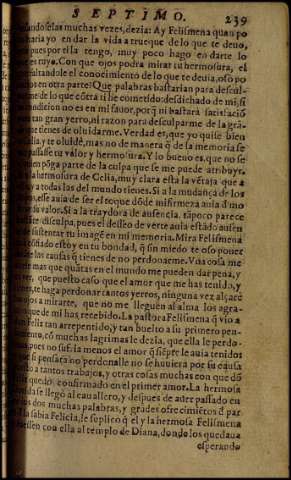 SEPTIMO. 239
selas muchas vezes, dezia: Ay Felismena quan po
haria yo en dar la vida a trueque de lo que te deuo,
pues por ella tengo, muy poco hago en darte lo
es tuyo. Con que ojos podra mirar tu hermosura, el
el conocimiento de lo que te deuia, oso po
en otra parte? Que palabras bastarian para descul-
de lo que côtra ti he cometido: desdichado de mi, si
condicion no es en mi fauor, porq̃ ni bastara satisfació
tan gran yerro, ni razon para desculparme de la grã-
que tienes de oluidarme. Verdad es, que yo quise bien
y te oluidé, mas no de manera q̃ de la memoria se
passasse tu valor y hermosura. Y lo bueno es, que no se
põga parte de la culpa que se me puede atribuyr,
hermosura de Celia, muy clara esta la vẽtaja que a
y a todas las del mundo tienes. Si a la mudança de los
esse auia de ser el toque dõde mi firmeza auia d̃ mo
su valor. Si a la traydora de ausencia, tãpoco parece
disculpa, pues el desseo de verte auia estado ausen
de sustentar tu imagẽ en mi memoria. Mira Felismena
cõfiado estoy en tu bondad, q̃ sin miedo te oso poner
las causas q̃ tienes de no perdonarme. Vna cosa me
mas que quãtas en el mundo me pueden dar pena, y
ver, que puesto caso que el amor que me has tenido, y
te haga perdonar tantos yerros, ninguna vez alçaré
ojos a mirarte, que no me lleguen al alma los agra-
que de mi has recebido. La pastora Felismena q̃ vio a
Felix tan arrepentido, y tan buelto a su primero pen-
có muchas lagrimas le dezia, que ella le perdo-
pues no suf ia menos el amor q̃ siẽpre le auia tenidos
si pensara no perdonalle no se huuiera por su causa
a tantos trabajos, y otras cosas muchas con que dõ
quedó confirmado en el primer amor. La hermosa
se llegó al cauallero, y despues de auer passado en
dos muchas palabras, y grãdes ofrecimiẽtos d̃ par
la sabia Felicia, le suplicó q̃ el y la hermosa Felismena
con ella al templo de Diana, donde los quedaua
esperando